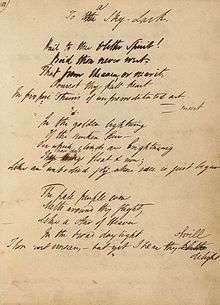 To the Sky-Lark.
Hail to thee blithe Spirit!
Bird thou never wert
That from Heaven or near it
Pourest thy full heart
In profuse strains of unpremeditated art
In the golden lightning
Of the sunken Sun
O'er which clouds are brightning
float & run,
Like an unbodied joy whose race is just begun
The pale purple even
Melts around thy flight,
Like a star of Heaven
In the broad daylight
Thou art unseen, — but yet I hear thy shrill
delight